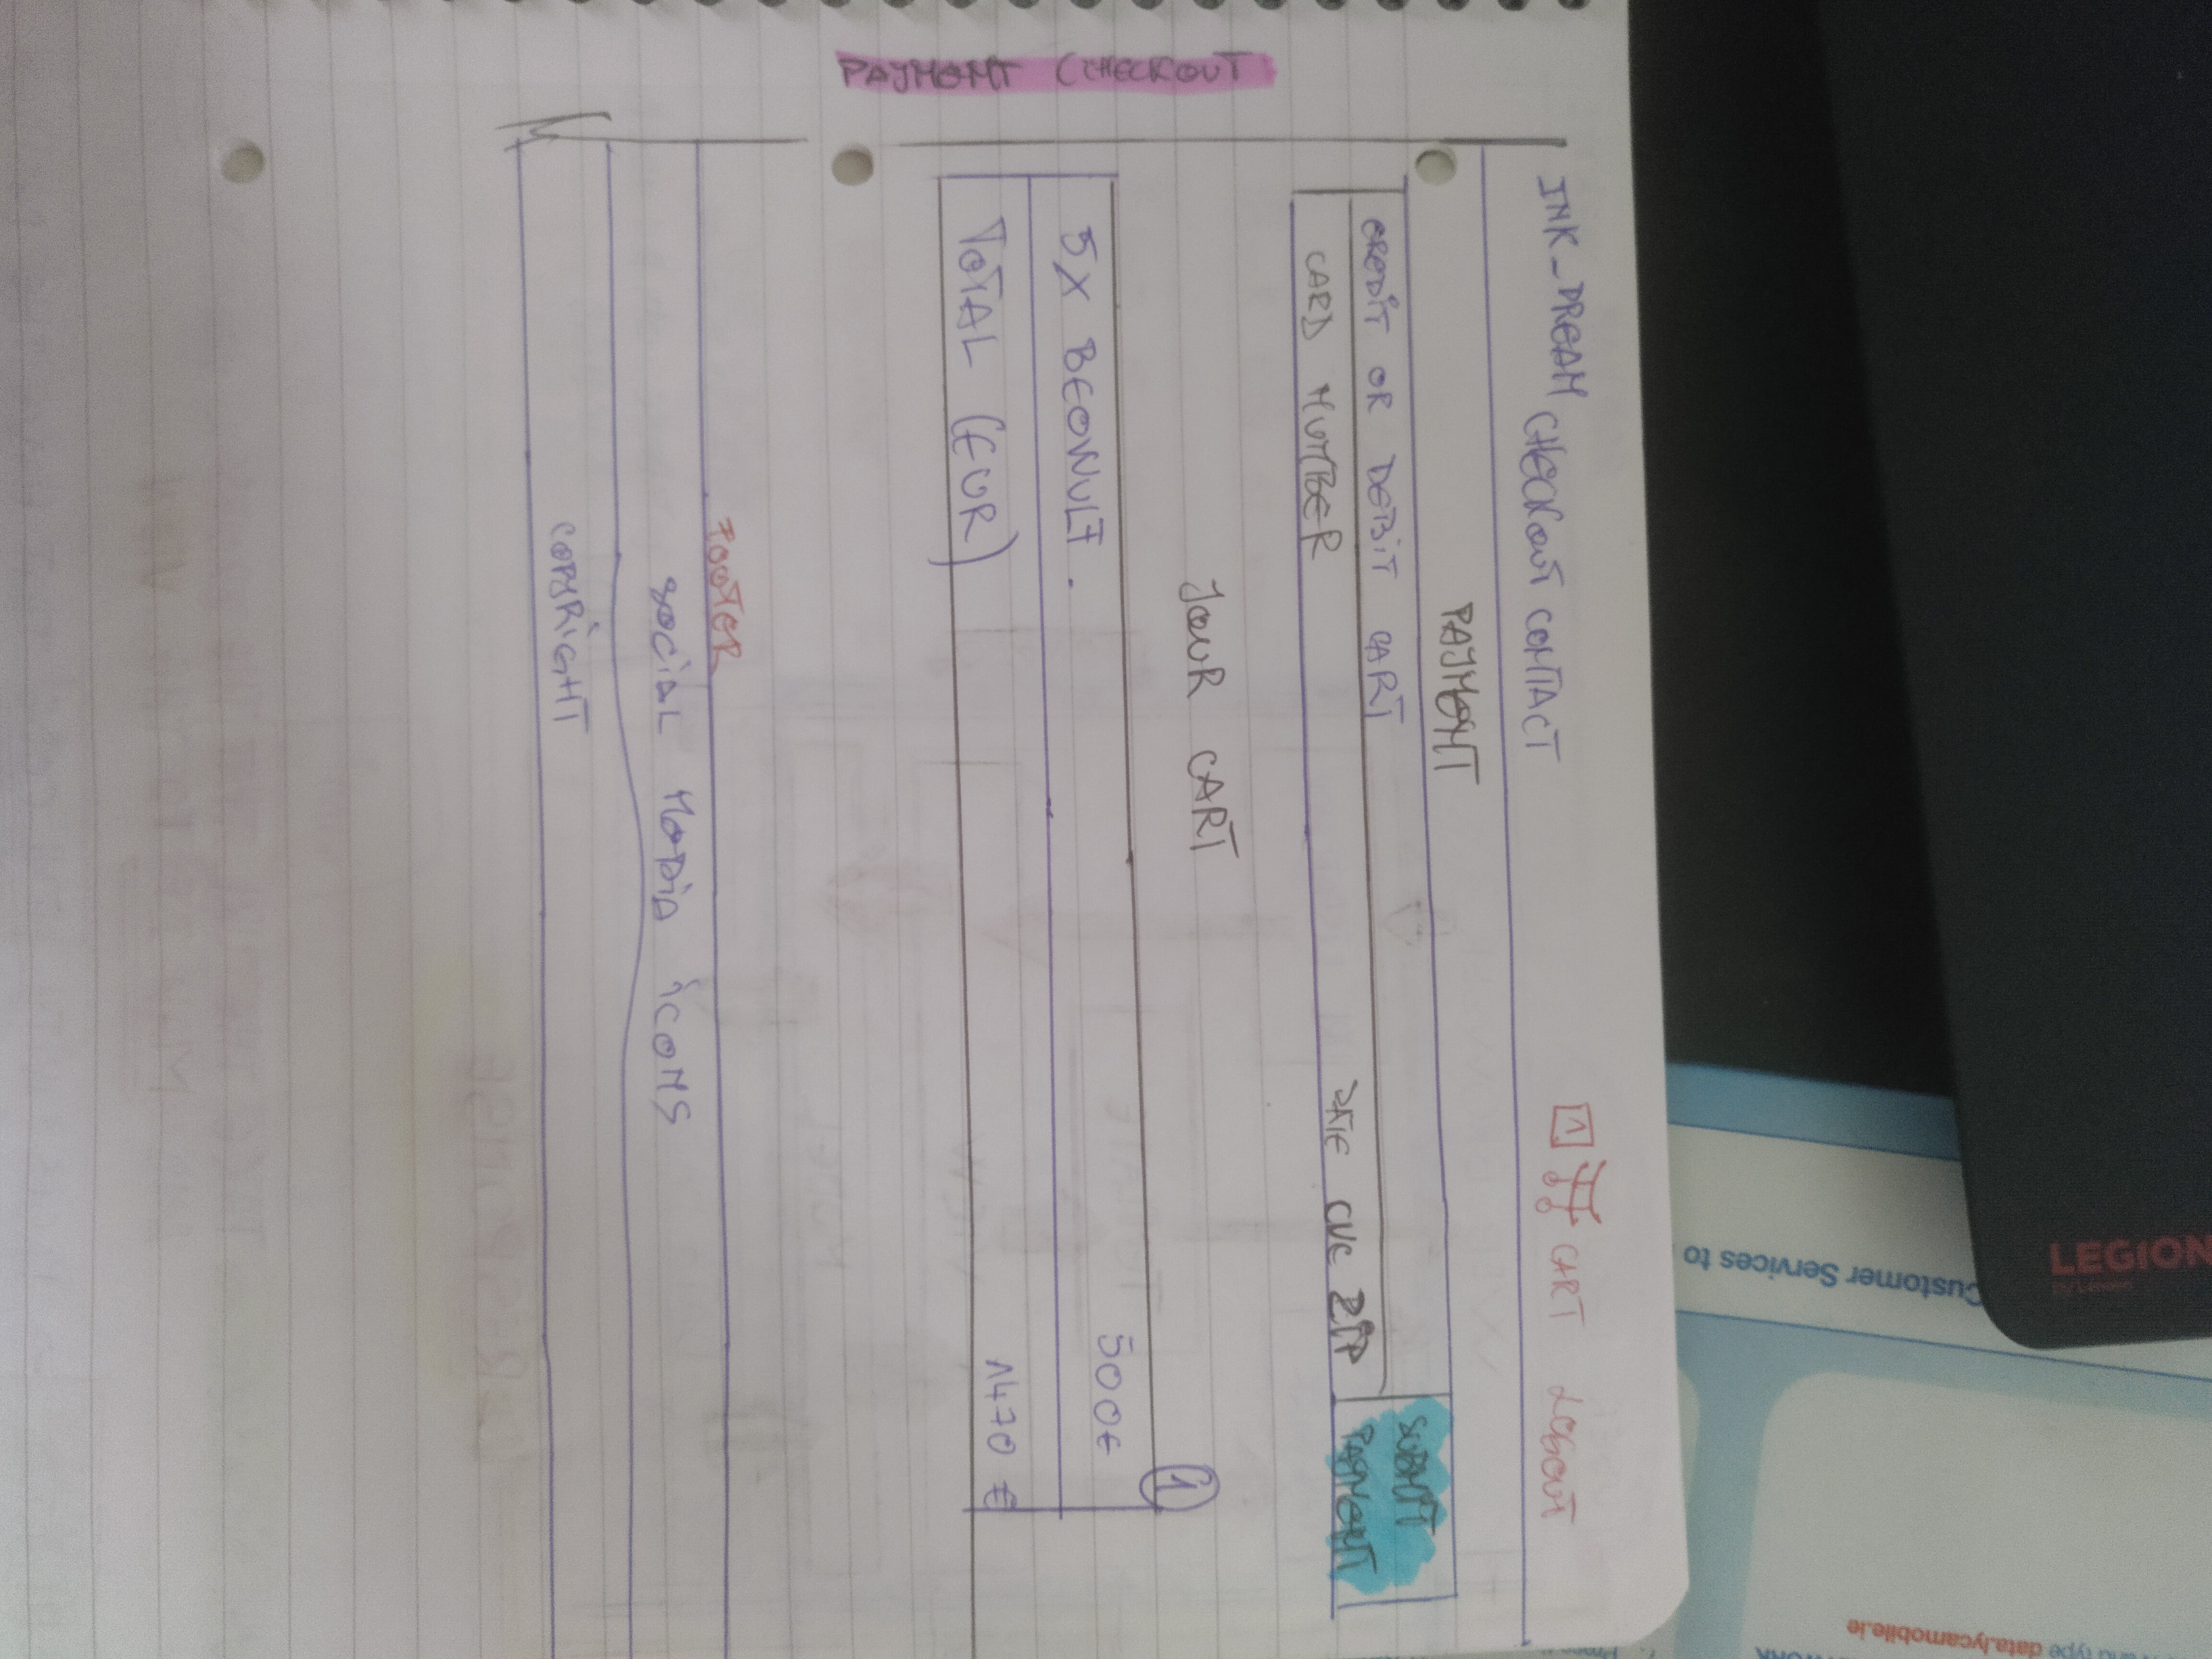 PAYMENT CHECKOUT
INK_DREAM CHECKOUT CONTACT 1 CART LOGOUT
PAYMENT
CREDIT OR DEBIT CART
CARD NUMBER DATE CVC ZIP
SUBMIT
PAYMENT
YOUR CART 1
5X BEOWULF. 500€
TOTAL (EUR) 1470 €
FOOTER
SOCIAL MEDIA ICONS
COPYRIGHT
LEGION
Customer Services to
and type data.lycamobile.ie